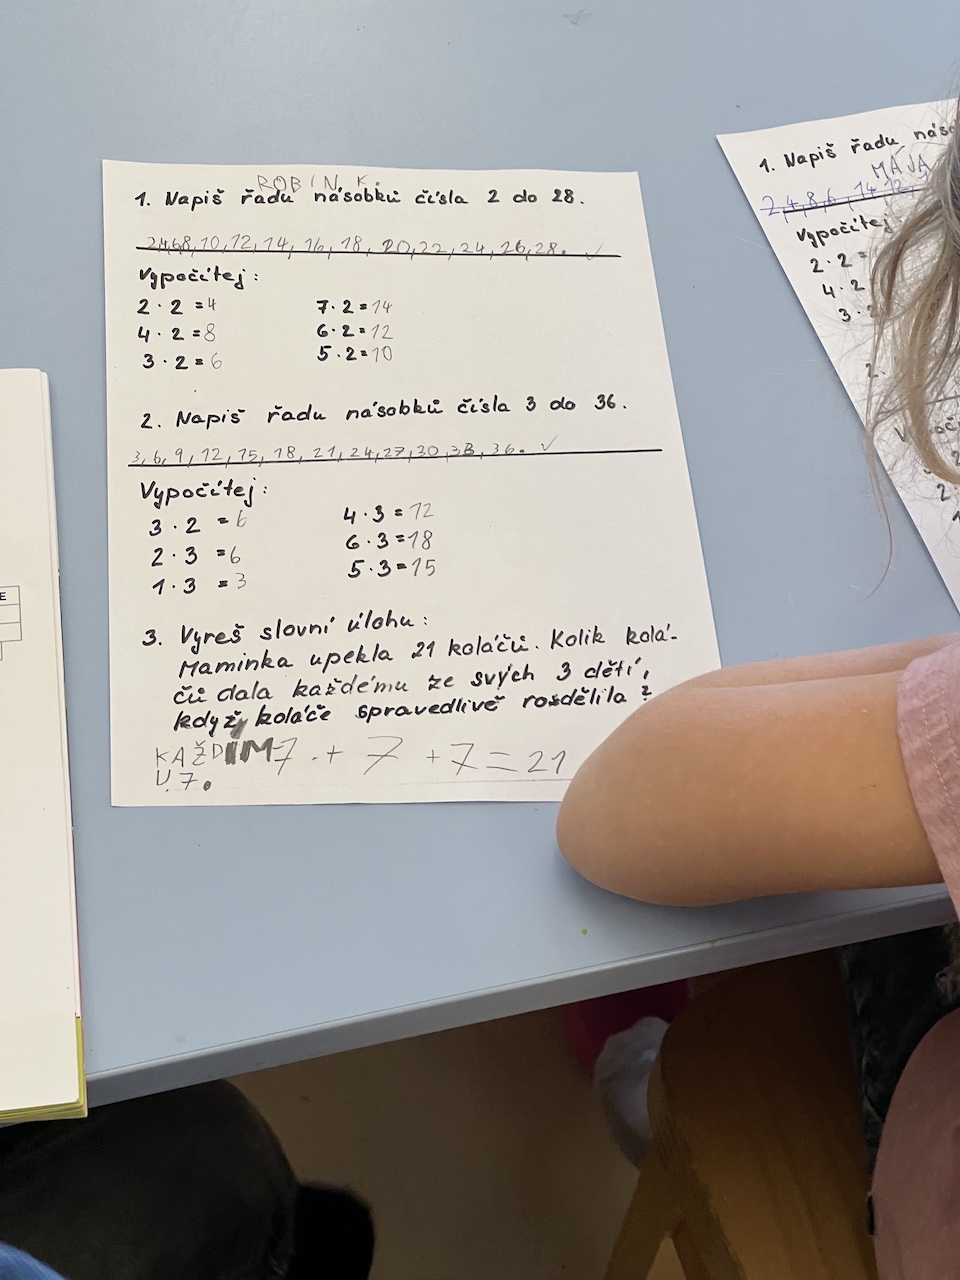 ROBIN K.
1. Napiš řadu násobků čísla 2 do 28.
2,4,6,8,10,12,14,16,18,20,22,24,26,28. ✓
Vypočítej:
2 · 2 = 4 7 · 2 = 14
4 · 2 = 8 6 · 2 = 12
3 · 2 = 6 5 · 2 = 10
2. Napiš řadu násobků čísla 3 do 36.
3,6,9,12,15,18,21,24,27,30,33,36. ✓
Vypočítej:
3 · 2 = 6 4 · 3 = 12
2 · 3 = 6 6 · 3 = 18
1 · 3 = 3 5 · 3 = 15
3. Vyřeš slovní úlohu:
Maminka upekla 21 koláčů. Kolik kolá-
čů dala každému ze svých 3 dětí,
když koláče spravedlivě rozdělila?
KAŽDIM 7 + 7 + 7 = 21
U 7.
1. Napiš řadu
MÁJA
2,4,8,6,14,12,
Vypočítej
2 · 2 =
4 · 2
3 ·
E